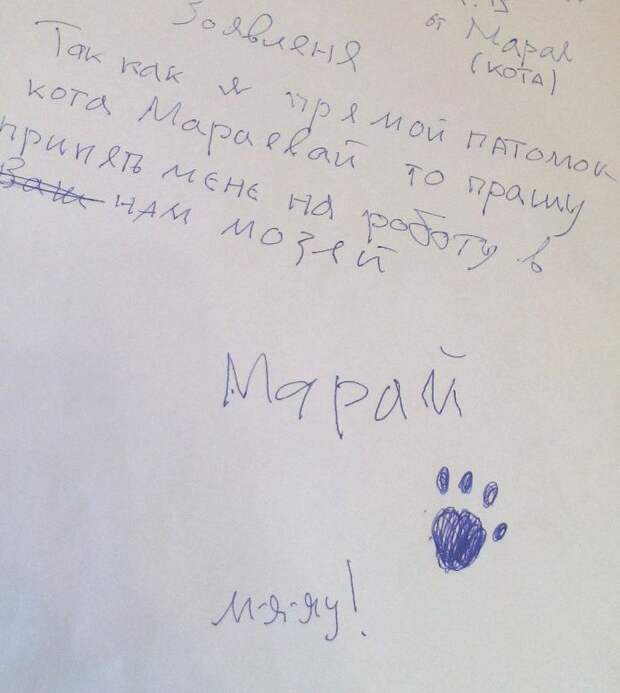 от Мара
(КОТА)
Заявленя
Так как я прямой патомок
кота Мараевай то прашу
принять мене на роботу в
Ваш нам мозей
Марай
м-я-яу!